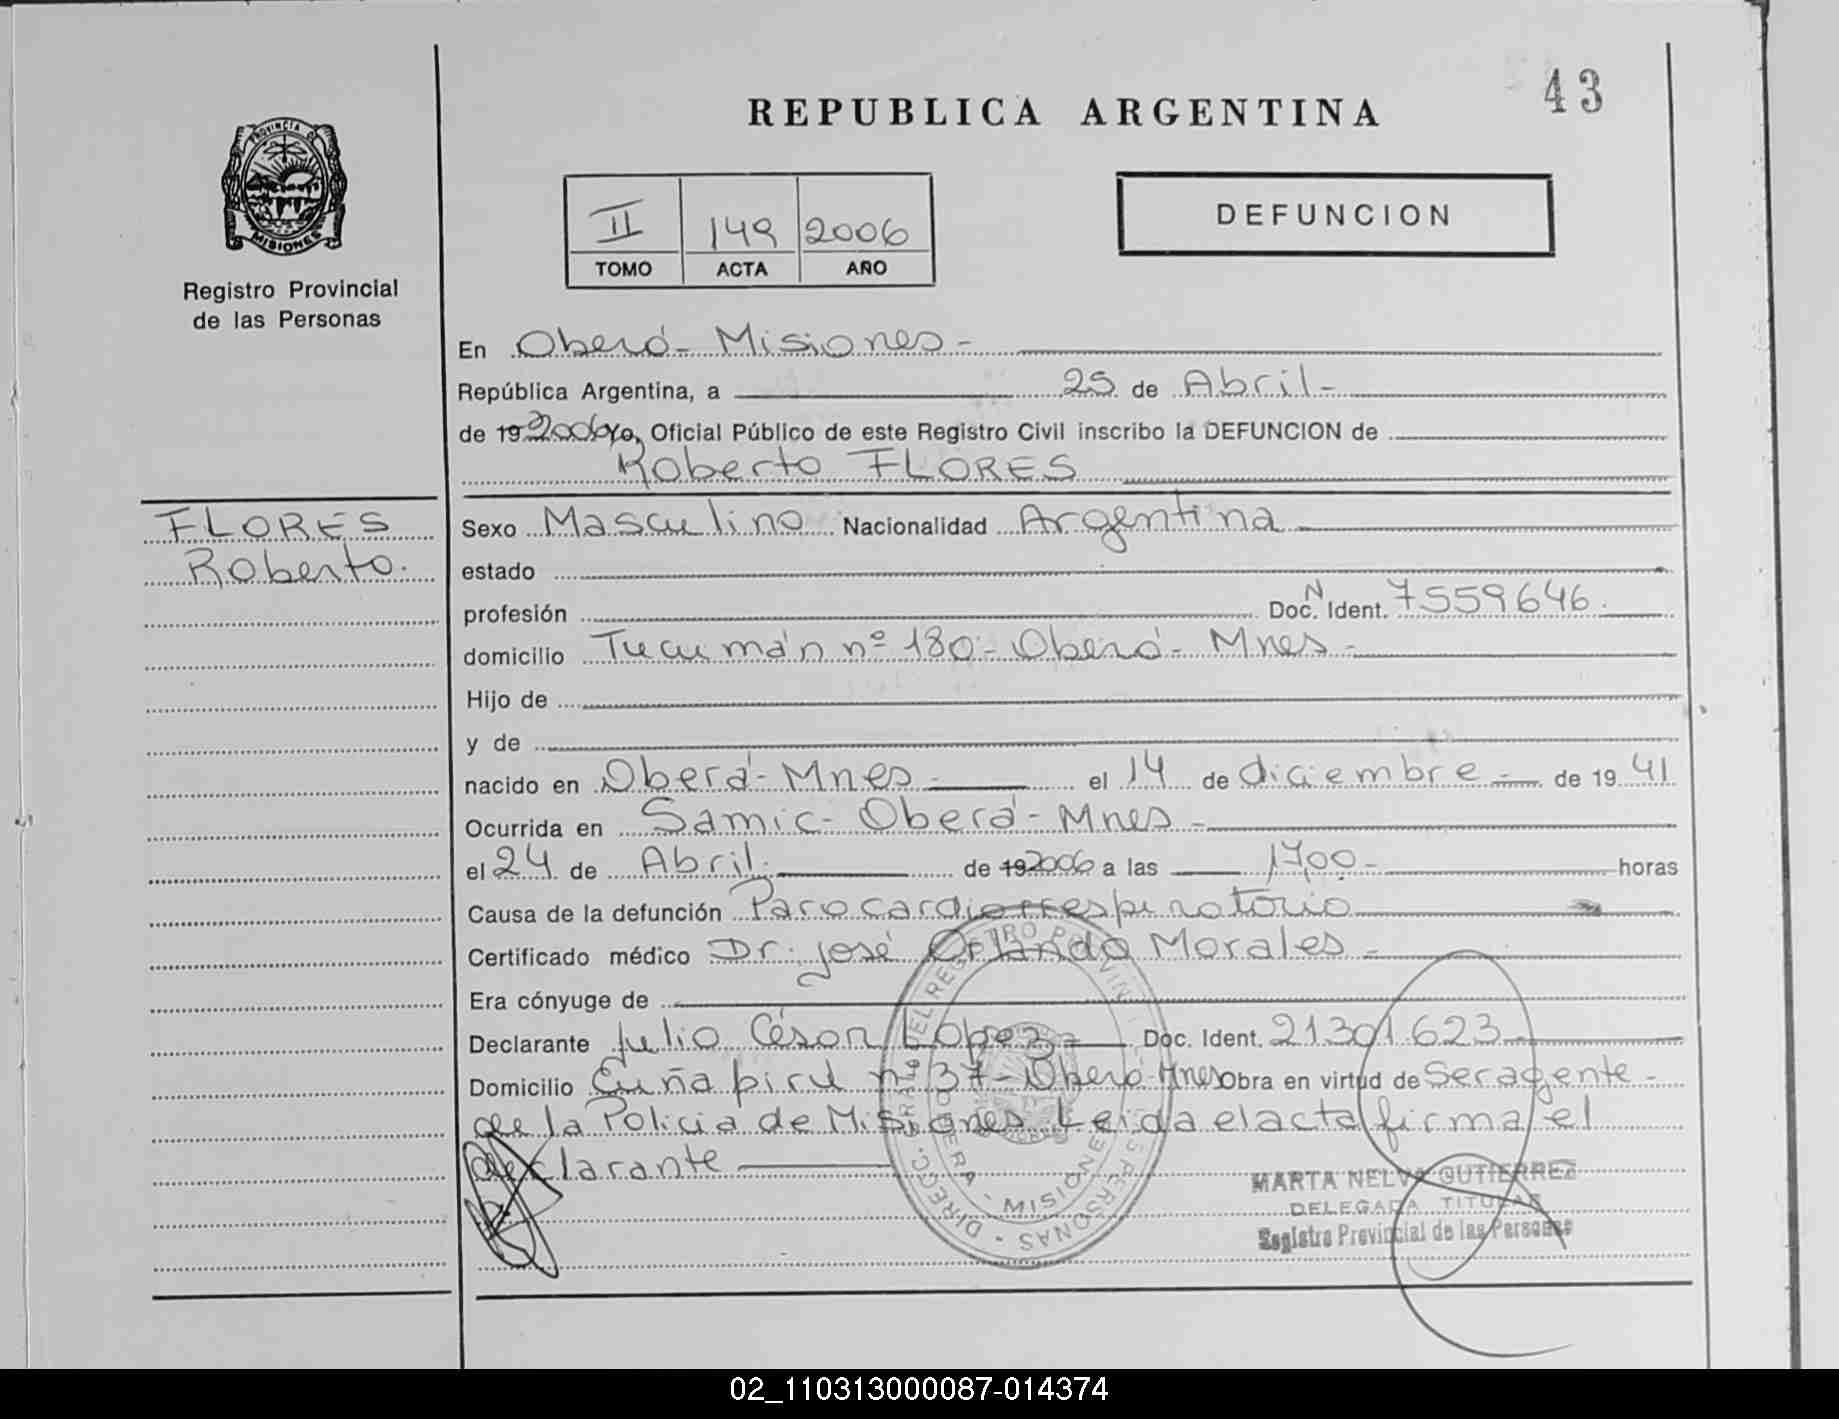 43
REPUBLICA ARGENTINA
PROVINCIA DE
MISIONES
Registro Provincial
de las Personas
II 149 2006
TOMO ACTA AÑO
DEFUNCION
En Oberá- Misiones-
República Argentina, a 25 de Abril-
de 19 2006 Yo, Oficial Público de este Registro Civil inscribo la DEFUNCION de
Roberto FLORES
FLORES
Roberto.
Sexo Masculino Nacionalidad Argentina
estado
profesión Doc. N Ident. 7559646.
domicilio Tucumán nº 180- Oberá- Mnes-
Hijo de
y de
nacido en Oberá- Mnes- el 14 de diciembre- de 19 41
Ocurrida en Samic- Oberá- Mnes-
el 24 de Abril. de 19 2006 a las 17,00- horas
Causa de la defunción Paro cardiorrespiratorio
Certificado médico Dr. José Orlando Morales-
Era cónyuge de
Declarante Julio César Lopez- Doc. Ident. 21301.623-
Domicilio Cuña pirú nº 37- Oberá- Mnes Obra en virtud de Ser agente-
de la Policia de Misiones Leida el acta firma el
declarante
MARTA NELVA GUTIERREZ
DELEGADA TITULAR
Registro Provincial de las Personas
02_110313000087-014374